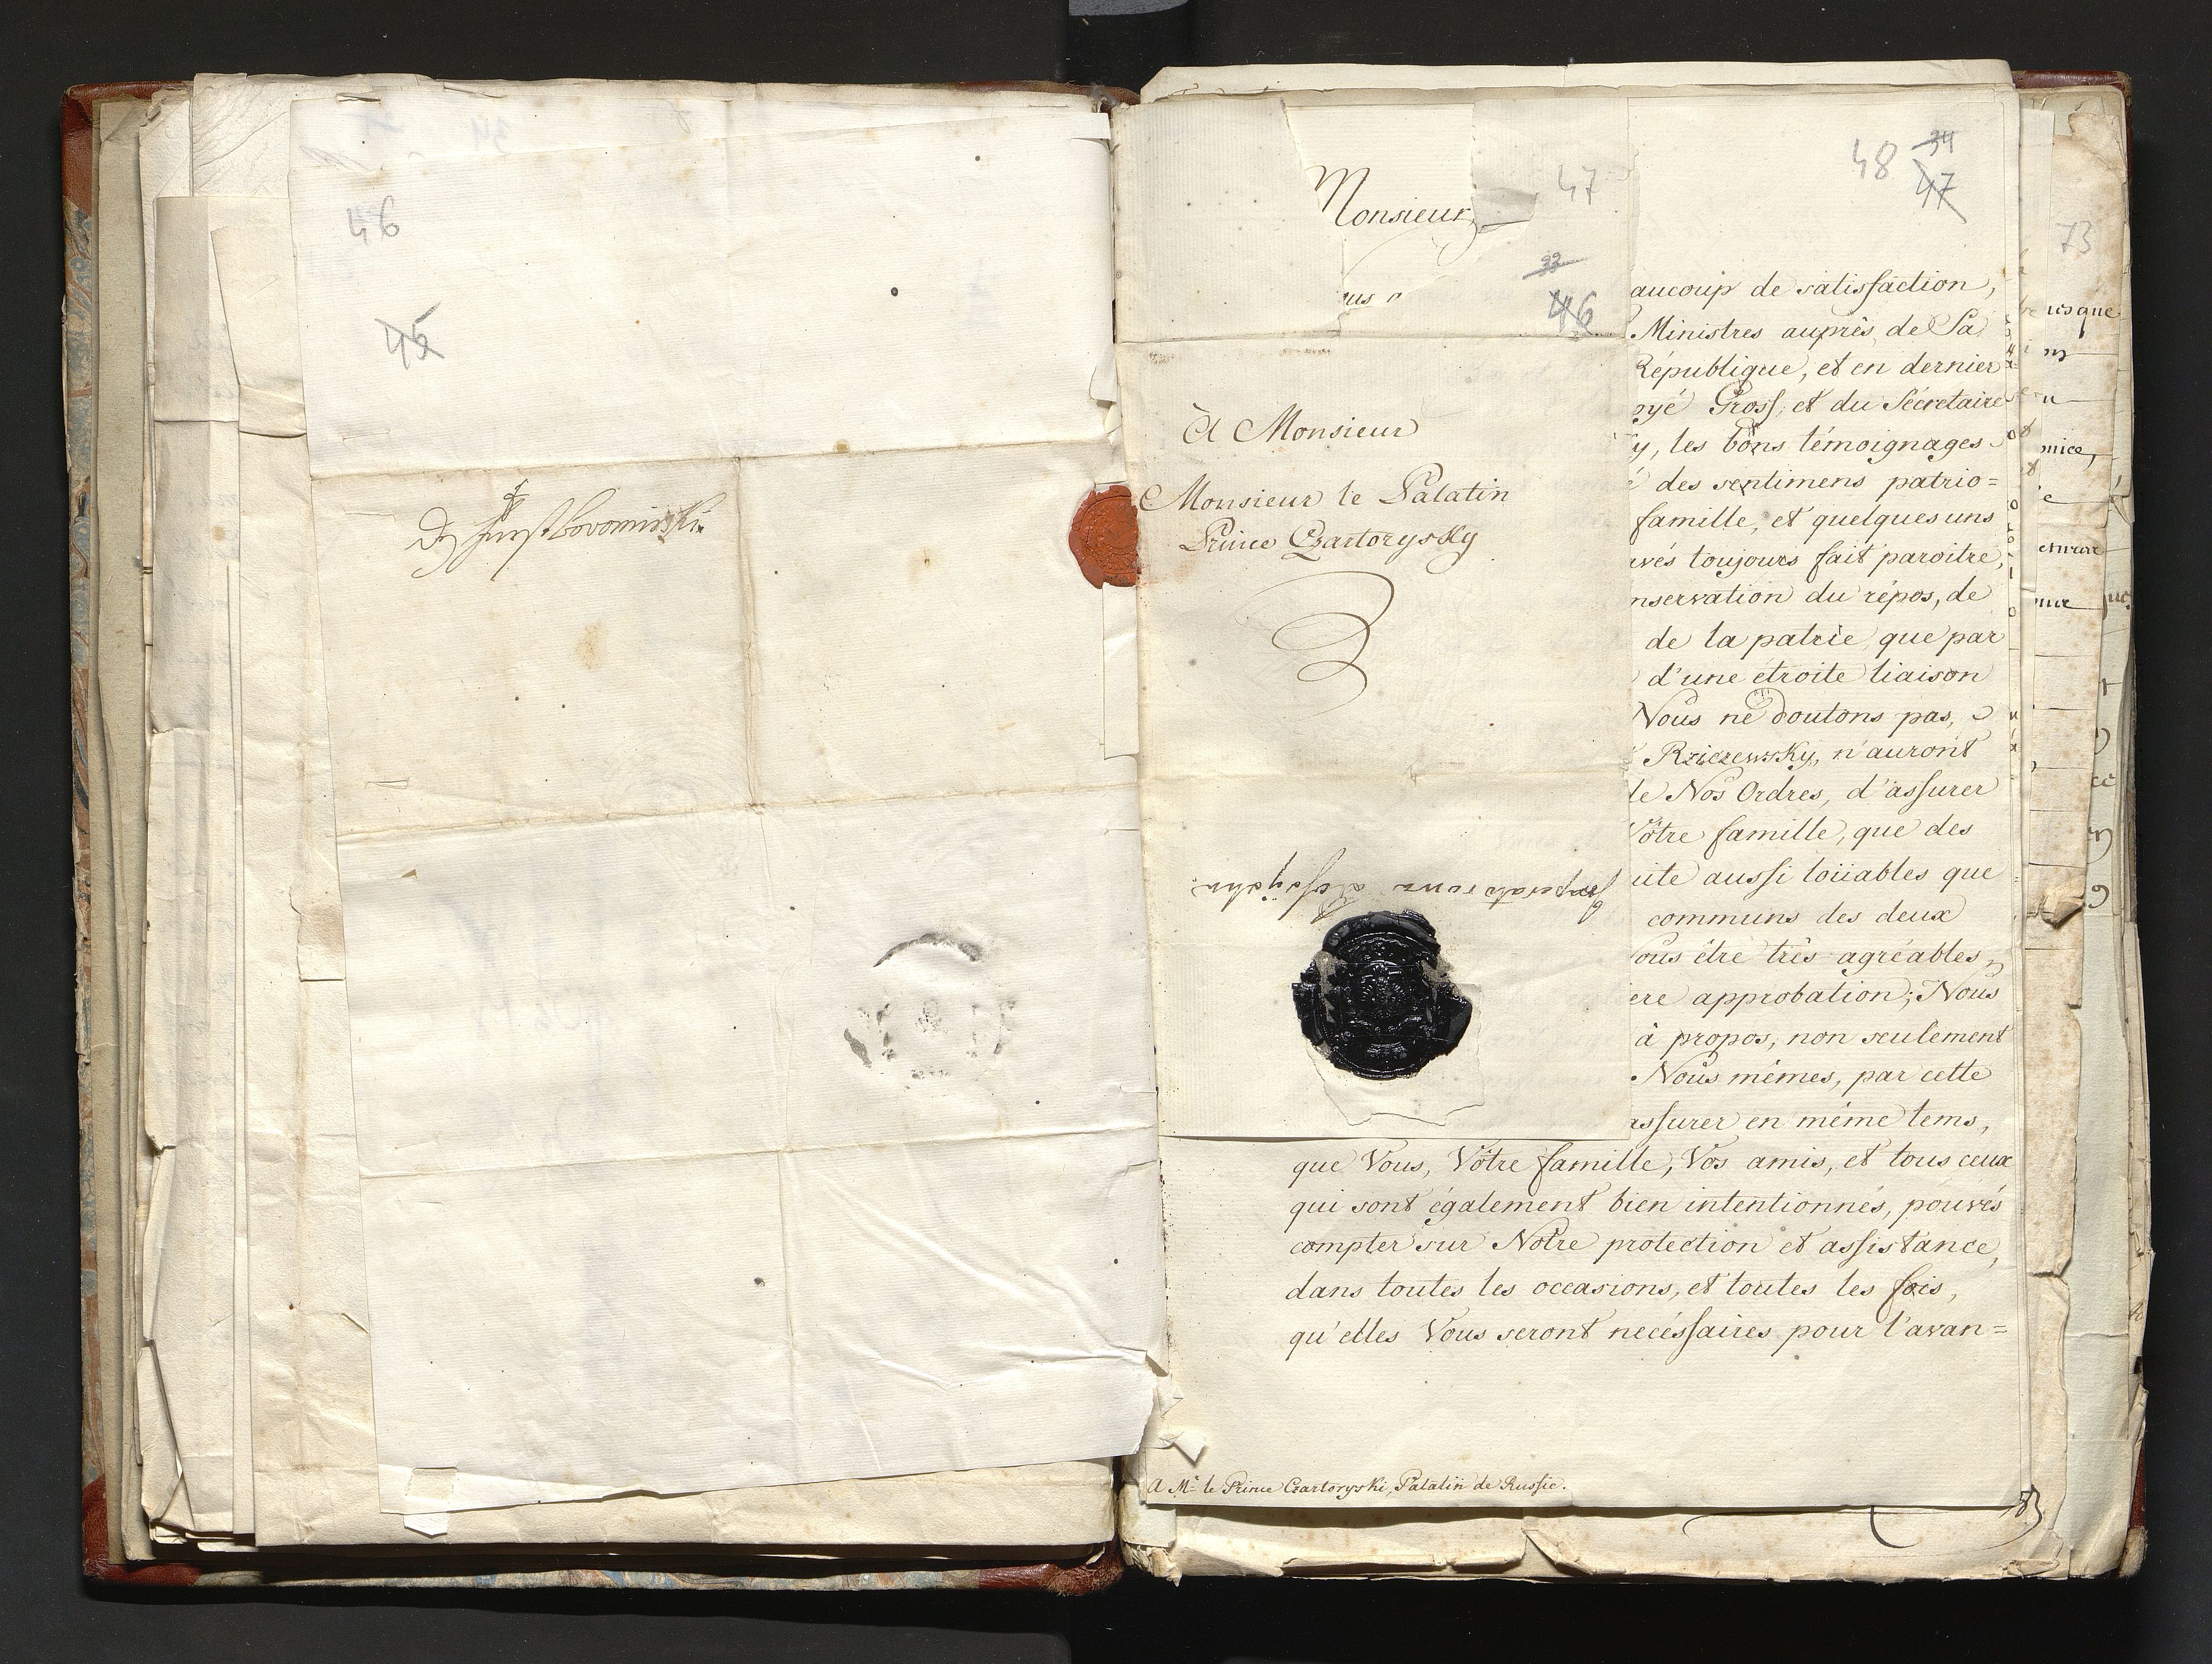 46
45
47
33
46
48
34
47
73
Monsieur,
us
à Monsieur
Monsieur le Palatin
Prince Czartorysky
aucoup de satisfaction,
Ministres auprès de Sa
République, et en dernier
oyé Gross, et du Sécretaire
y, les bons témoignages
é des sentimens patrio=
famille, et quelques uns
avés toujours fait paroitre,
nservation du répos, de
de la patrie que par
d'une étroite liaison
Nous ne doutons pas,
Rziczewsky, n'auront
de Nos Ordres, d'assurer
Vôtre famille, que des
uite aussi loüables que
communs des deux
ous être très agréables,
ere approbation; Nous
à propos, non seulement
Nous mêmes, par cette
assurer en même tems,
que Vous, Vôtre famille, Vos amis, et tous ceux
qui sont également bien intentionnés, pouvés
compter sur Notre protection et assistance,
dans toutes les occasions, et toutes les fois,
qu'elles Vous seront necéssaires pour l'avan=
A Mr. le Prince Czartoryski, Palatin de Russie.
usque